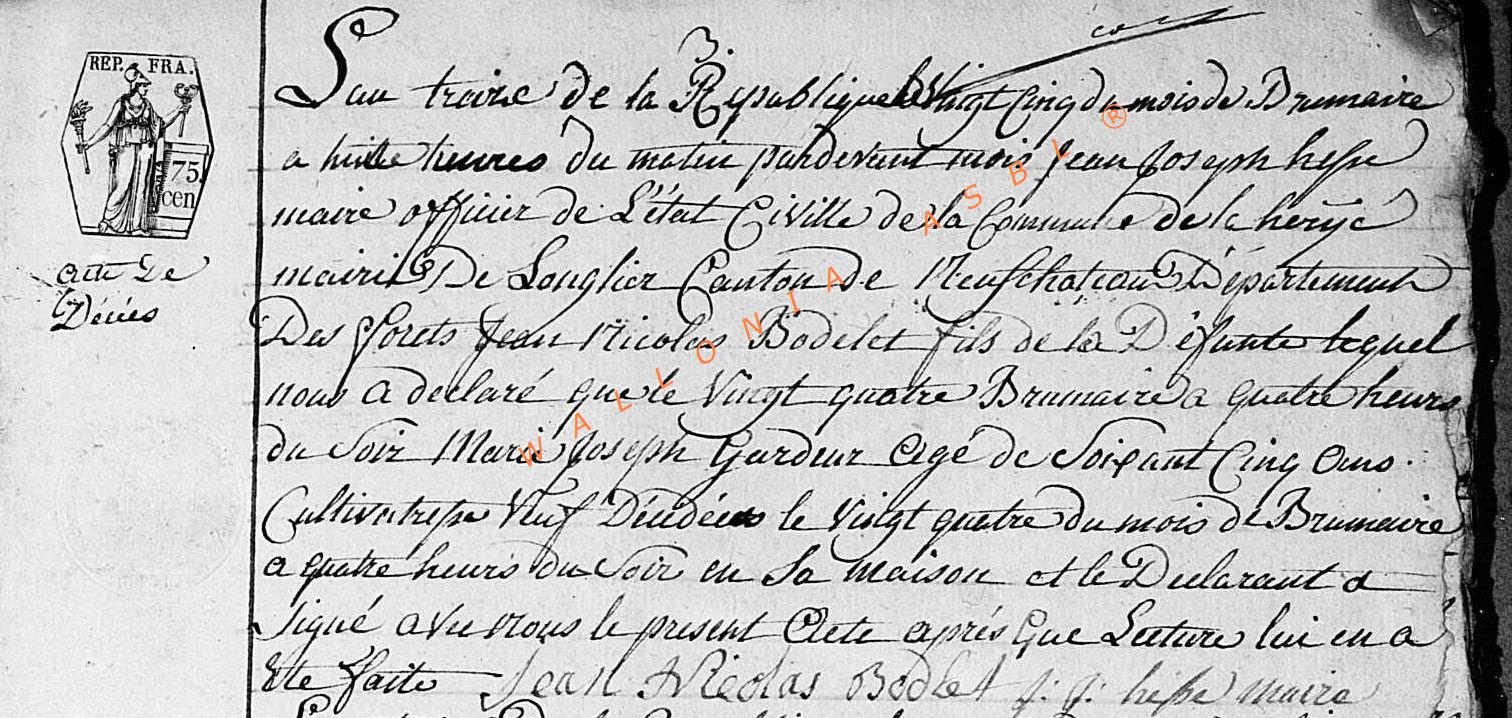 REP. FRA.
75.
cen
acte De
Décés
3.
L'an treize de la Republique le Vingt Cinq du mois de Brumaire
a huite heures du matin pardevant mois Jean Joseph hesse
maire officier de L'état Civille de la Commune de la herije
mairie De Longlier Canton de Neufchateau Département
Des forets Jean Nicolas Bodelet fils de la Defunte lequel
nous a declaré que le Vingt quatre Brumaire a quatre heurs
du Soir Marie Joseph Gardeur agé de Soixant Cinq ans.
Cultivatresse Veuf Décédéés le Vingt quatre du mois de Brumaire
a quatre heurs du Soir en Sa maison et le Declarant a
signé avec nous le present Acte aprés que Lecture lui en a
ete faite Jean Nicolas Bodlet j: j: hesse maire
WALLONIA ASBL ®